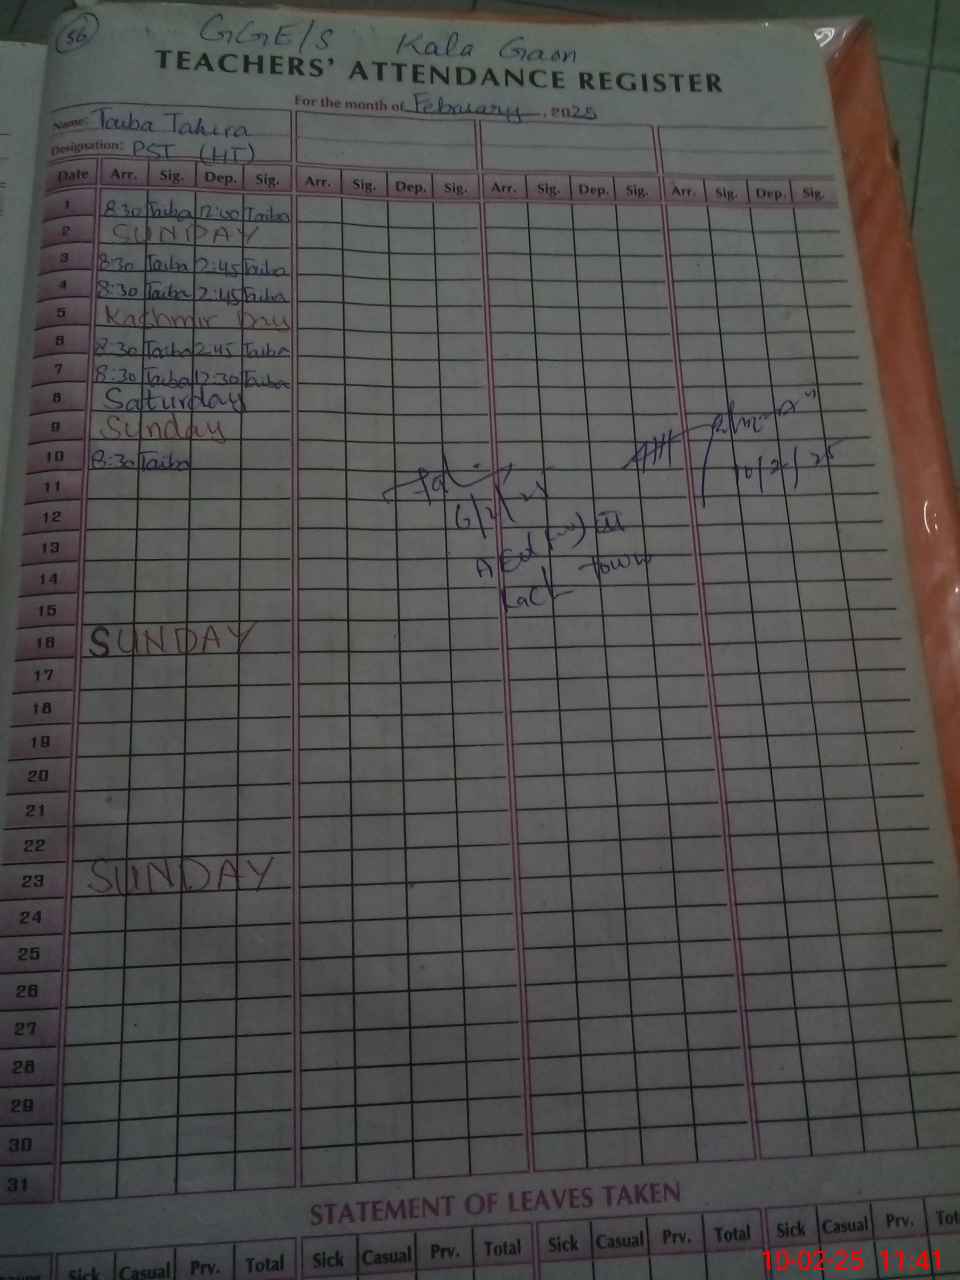 56
GGE/S Kala Gaon
TEACHERS' ATTENDANCE REGISTER
For the month of February, 2025
Name: Taiba Tahira
Designation: PST (HT)
Date Arr. Sig. Dep. Sig. Arr. Sig. Dep. Sig. Arr. Sig. Dep. Sig. Arr. Sig. Dep. Sig.
1 8:30 Taiba 12:00 Taiba
2 SUNDAY
3 8:30 Taiba 2:45 Taiba
4 8:30 Taiba 2:45 Taiba
5 Kashmir Day
6 8:30 Taiba 2:45 Taiba
7 8:30 Taiba 12:30 Taiba
8 Saturday
9 Sunday
10 8:30 Taiba
10/2/25
11
12
13
14
15
16 SUNDAY
17
18
19
20
21
22
23 SUNDAY
24
25
26
27
28
29
30
31
STATEMENT OF LEAVES TAKEN
Sick Casual Prv. Total Sick Casual Prv. Total Sick Casual Prv. Total Sick Casual Prv.
10-02-25 11:41